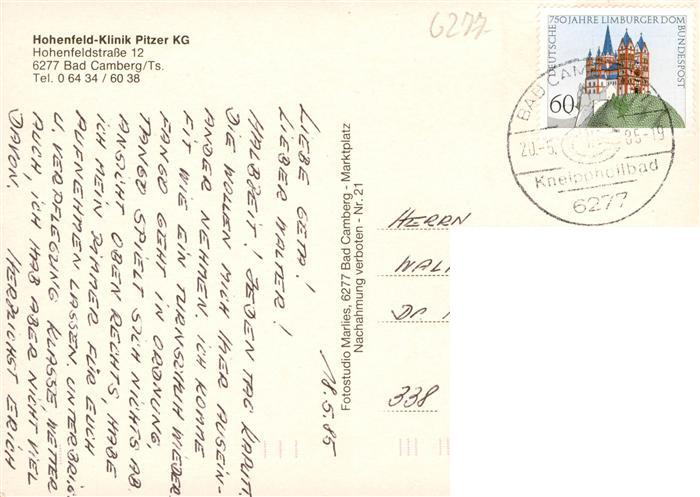 Hohenfeld-Klinik Pitzer KG
Hohenfeldstraße 12
6277 Bad Camberg/Ts.
Tel. 0 64 34 / 60 38
6277
DEUTSCHE
750 JAHRE LIMBURGER DOM
BUNDESPOST
60
BAD CAM
20.-5. 85-19
Kneippheilbad
6277
18.5.85
LIEBE GETA!
LIEBER WALTER!
HALBZEIT! JEDEN TAG KAPUTT.
DIE WOLLEN MICH HIER AUSEIN-
ANDER NEHMEN. ICH KOMME
FIT WIE EIN TURNSCHUH WIEDER.
FANGO GEHT IN ORDNUNG,
TANGO SPIELT SICH NICHTS AB.
ANSICHT OBEN RECHTS, HABE
ICH MEIN ZIMMER FÜR EUCH
AUFNEHMEN LASSEN. UNTERBRIG.
U. VERPFLEGUNG KLASSE, WETTER
AUCH, ICH HAB ABER NICHT VIEL
DAVON. HERZLICHST ERICH
Fotostudio Marlies, 6277 Bad Camberg - Marktplatz
Nachahmung verboten - Nr. 21
HERRN
WAL
DR.
338